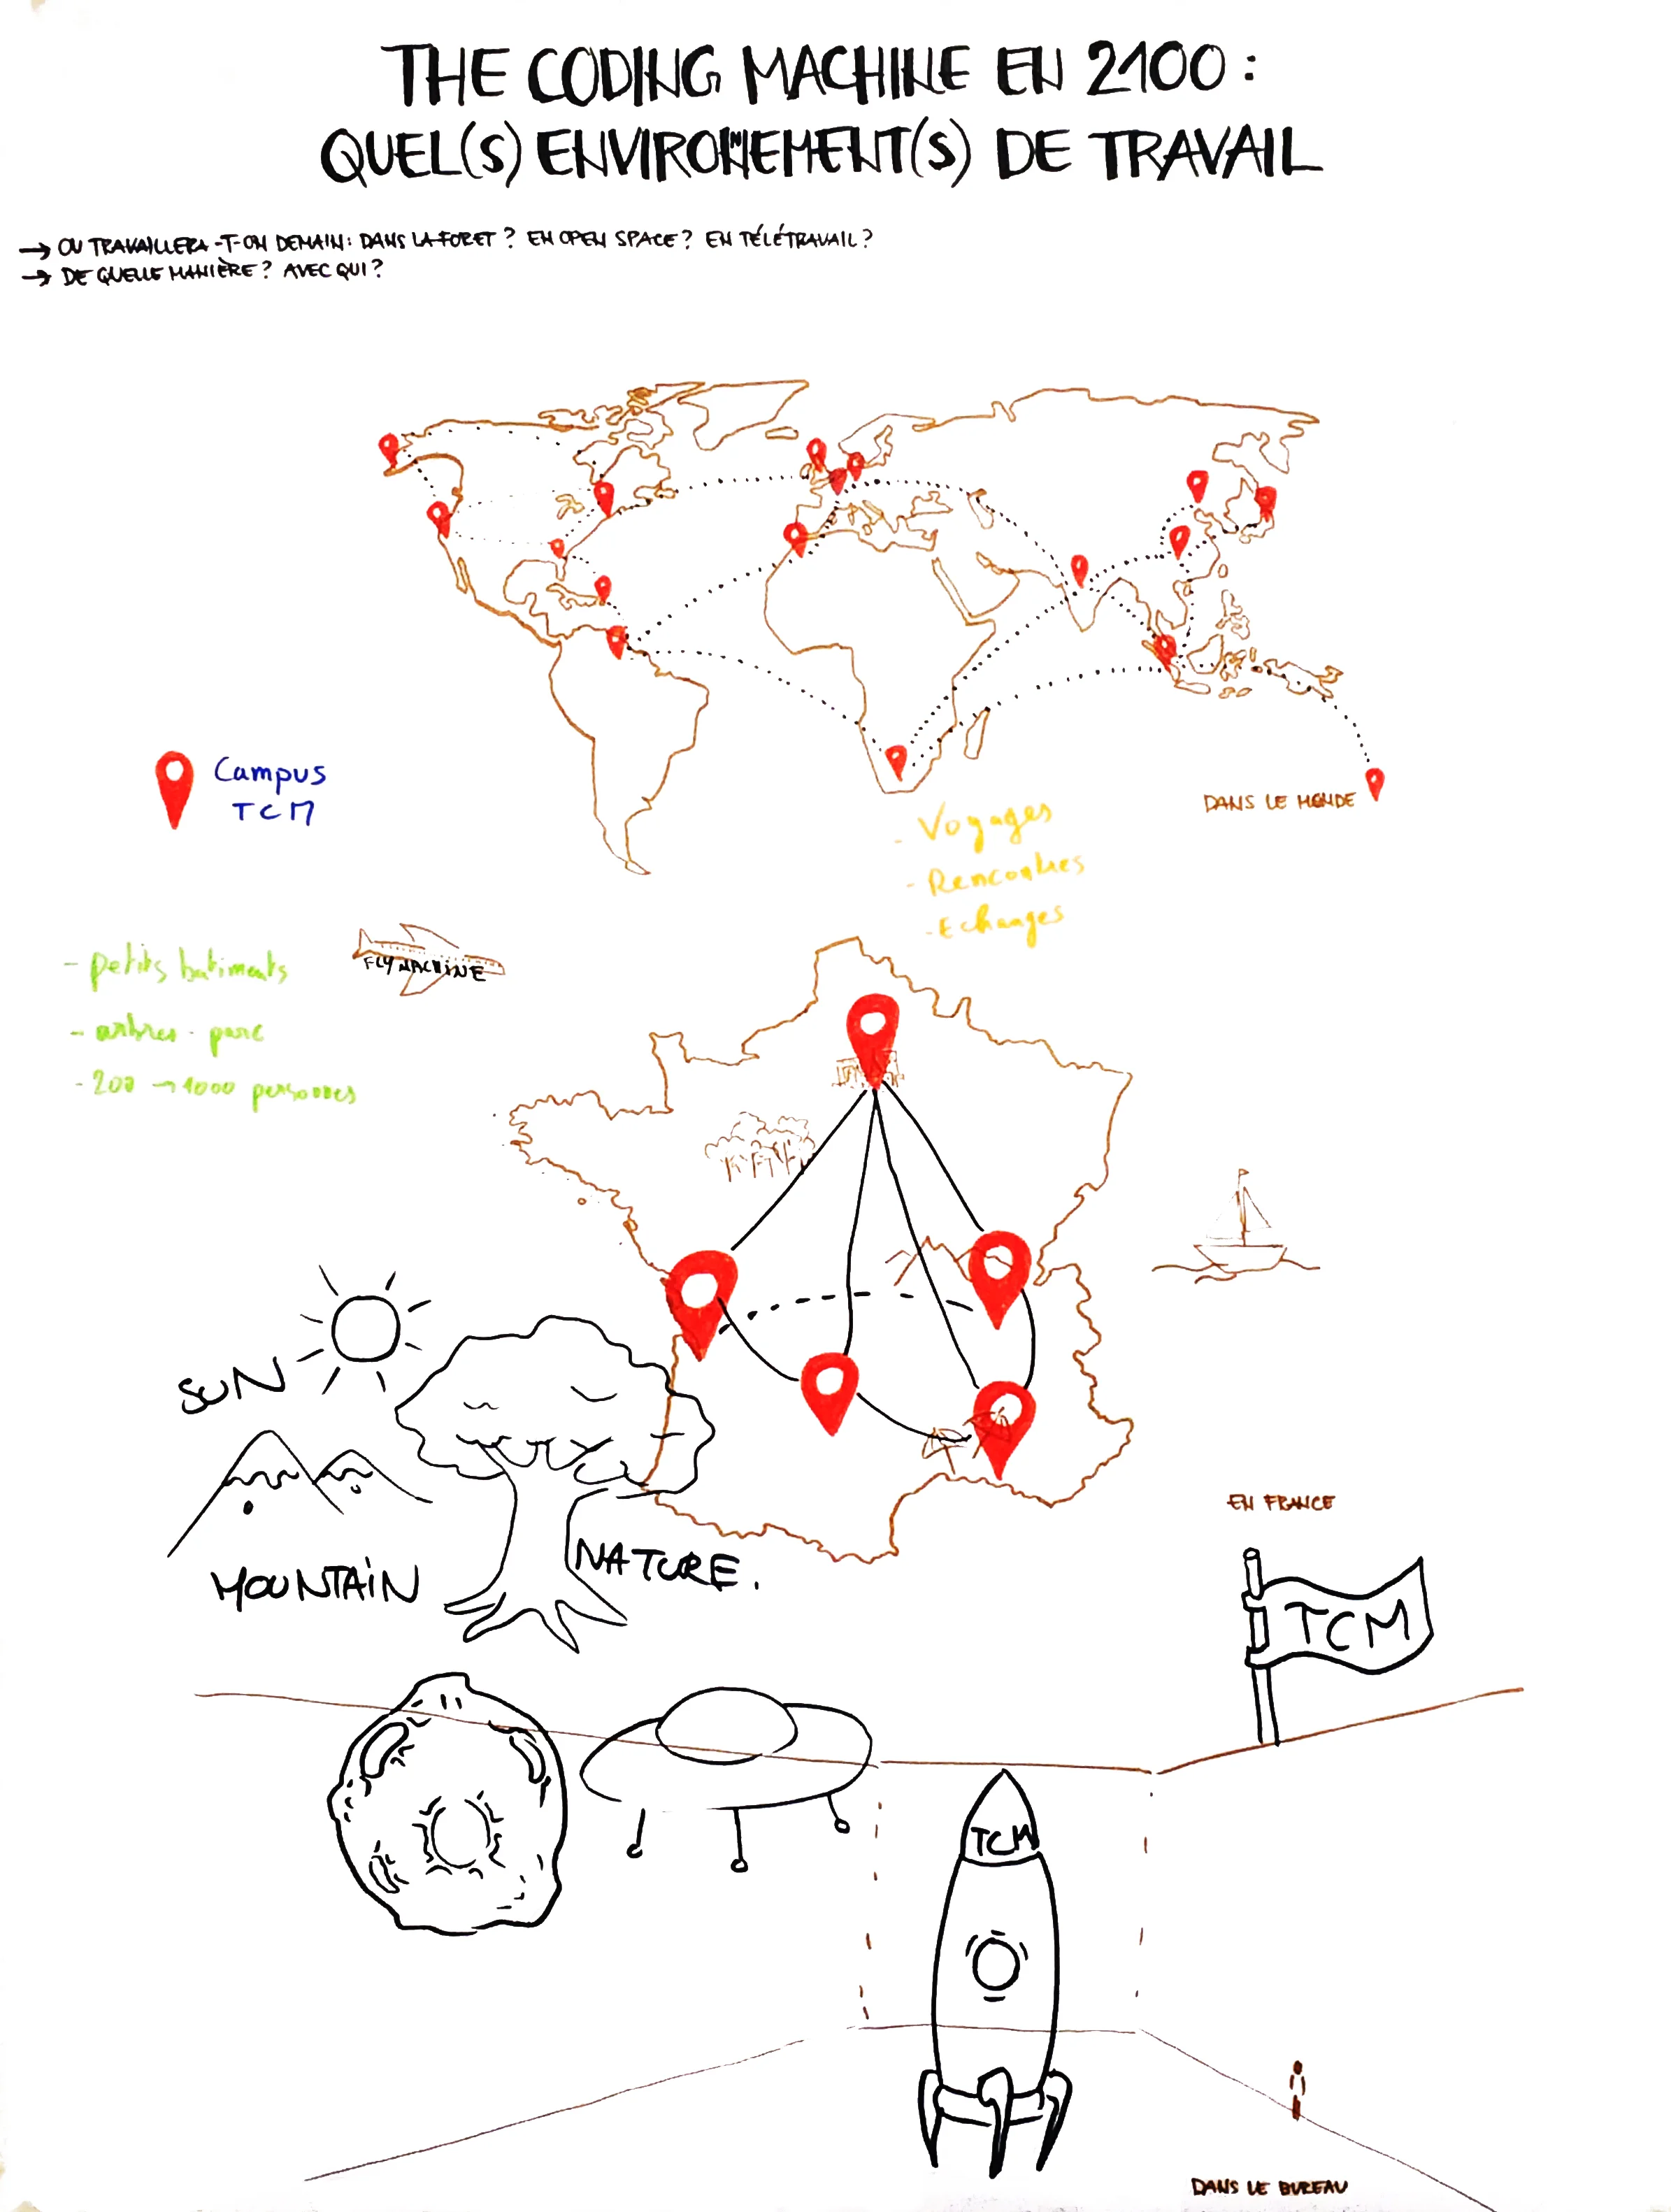 THE CODING MACHINE EN 2100 :
QUEL(S) ENVIRONEMENT(S) DE TRAVAIL
→ OU TRAVAILLERA-T-ON DEMAIN : DANS LA FORET ? EN OPEN SPACE ? EN TÉLÉTRAVAIL ?
→ DE QUELLE MANIÈRE ? AVEC QUI ?
Campus
TCM
DANS LE MONDE
- Voyages
- Rencontres
- Echanges
- petits batiments
- arbres - parc
- 200 → 1000 personnes
FLY MACHINE
SUN
MOUNTAIN
NATURE.
EN FRANCE
TCM
TCM
DANS LE BUREAU